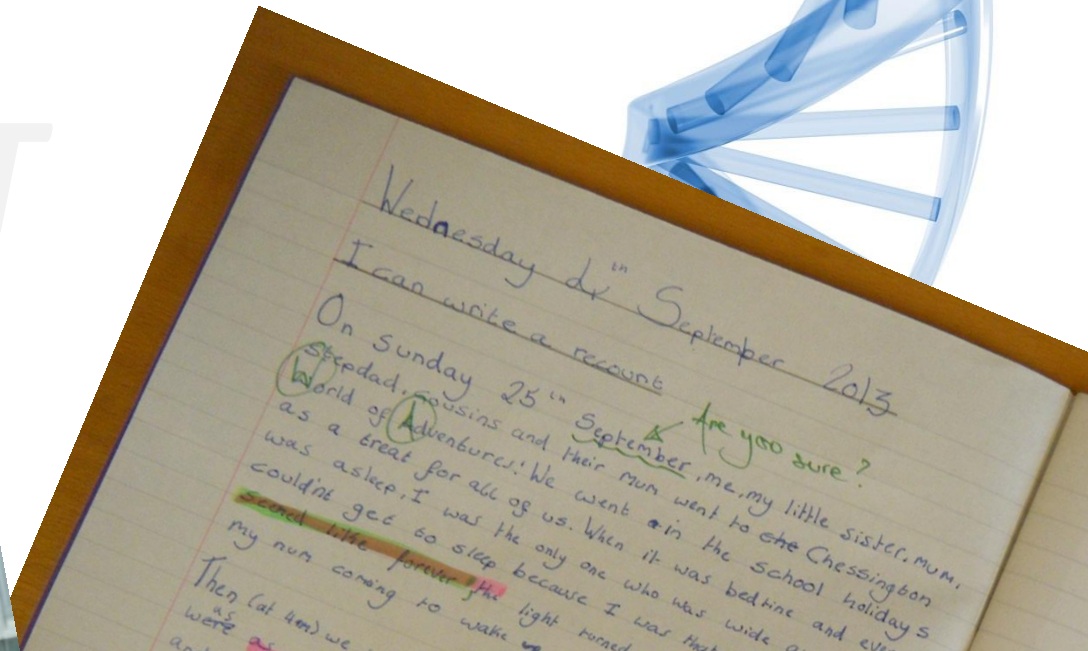 Wednesday September 2013
I can write a recount
On Sunday 25th September, me, my little sister, mum,
Are you sure?
stepdad, cousins and their mum went to the Chessington
World of Adventures! We went in the school holidays
as a treat for all of us. When it was bedtime and eve
was asleep, I was the only one who was wide a
couldn't get to sleep because I was that
seemed like forever, the light turned
my mum coming to wake
Then (at 4am) we
as
were as